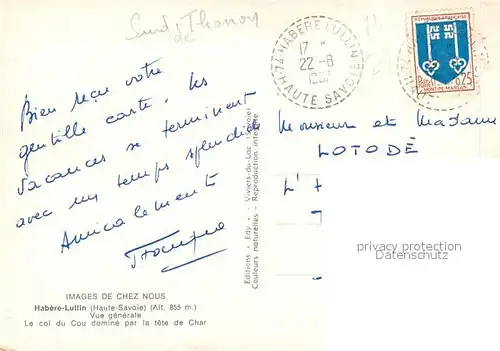 Sud de Thonon
74 HABÈRE LULLIN
17 H
22-8
HAUTE SAVOIE
REPUBLIQUE FRANÇAISE
0,25
MONT-DE-MARSAN
Bien reçu votre
gentille carte. Les
vacances se terminent
avec un temps splendide
Amicalement
Monsieur et Madame
LOTODÉ
L'
privacy protection
VersandPhilatelie
Editions « Edy » - Viviers-du-Lac (Savoie)
Couleurs naturelles - Reproduction interdite
IMAGES DE CHEZ NOUS
Habère-Lullin (Haute-Savoie) (Alt. 855 m.)
Vue générale
Le col du Cou dominé par la tête de Char